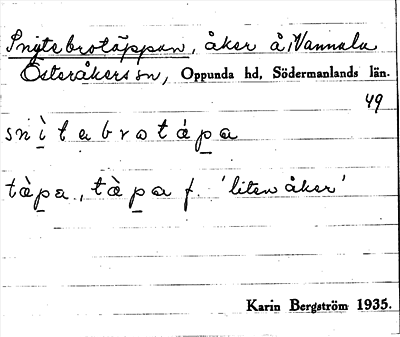 Snytebrotäppan, åker å Vannala
Österåkers sn, Oppunda hd, Södermanlands län.
49
snìtabrotápa
tàpa, tàpa f. 'liten åker'
Karin Bergström 1935.